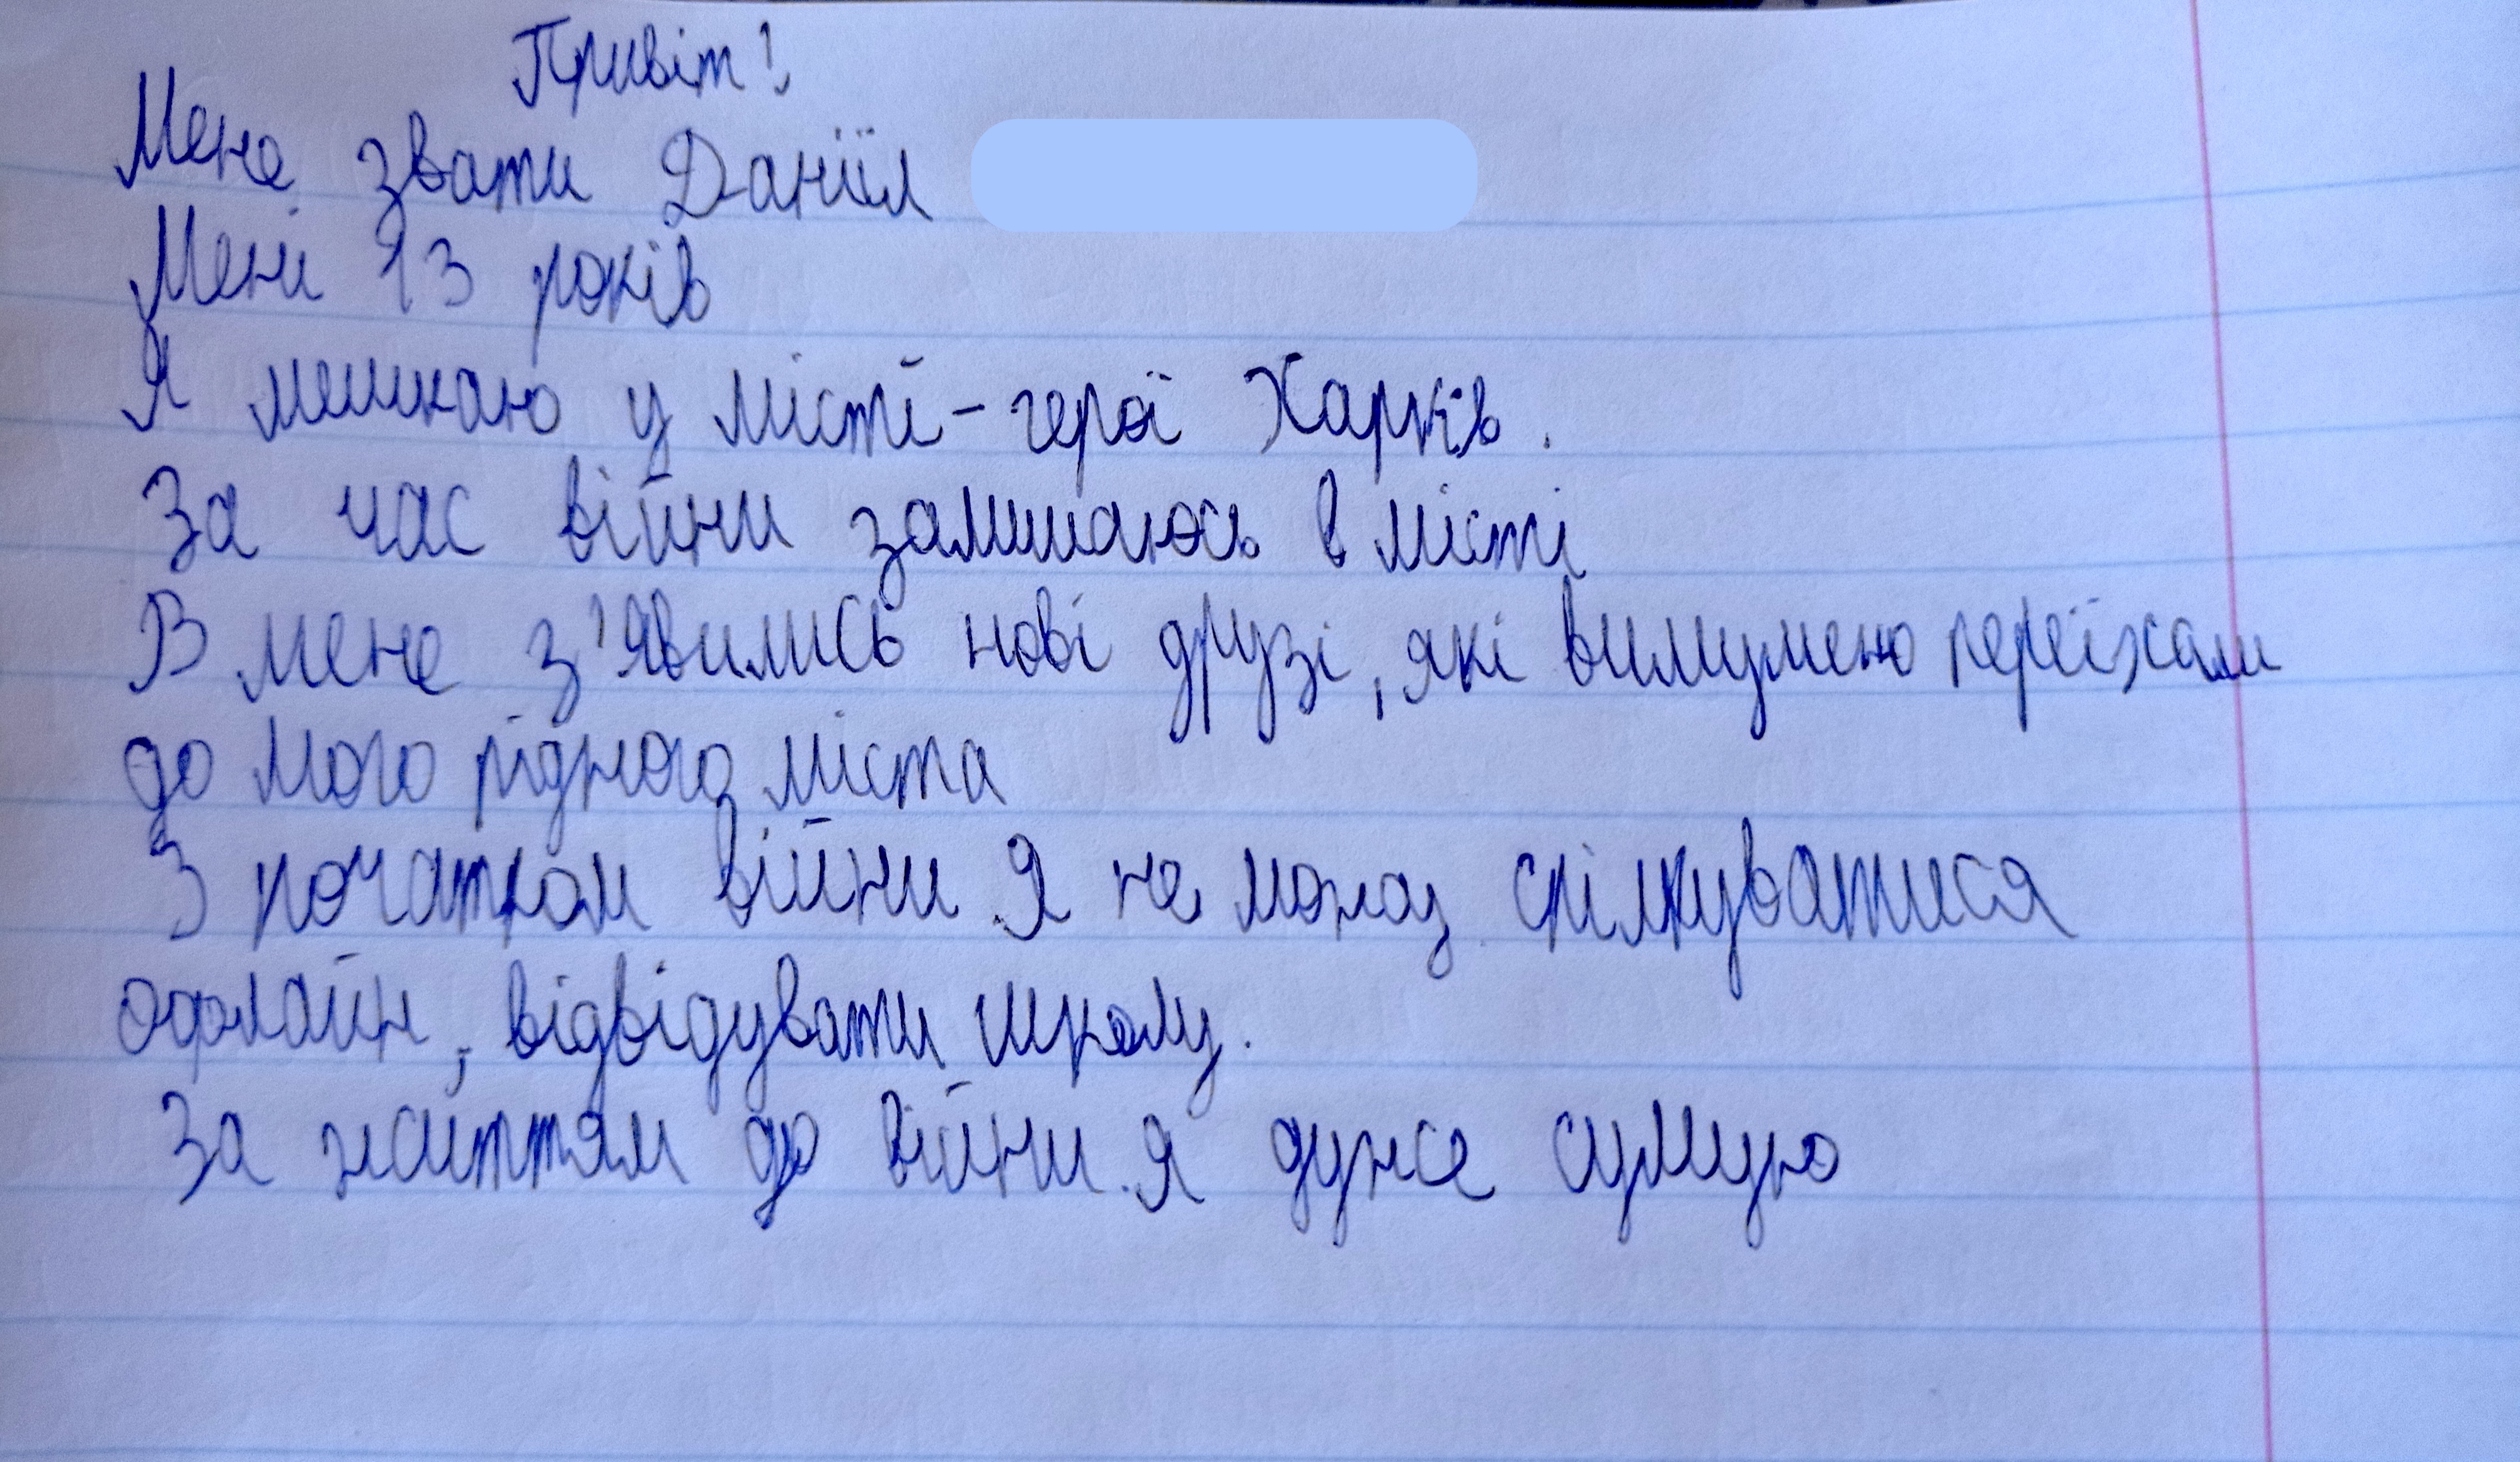 Привіт!
Мене звати Даніїл
Мені 13 років
Я мешкаю у місті-герої Харків.
За час війни залишаюсь в місті
В мене з'явились нові друзі, які вимушено переїхали
до мого рідного міста
З початком війни я не можу спілкуватися
офлайн, відвідувати школу.
За життям до війни я дуже сумую